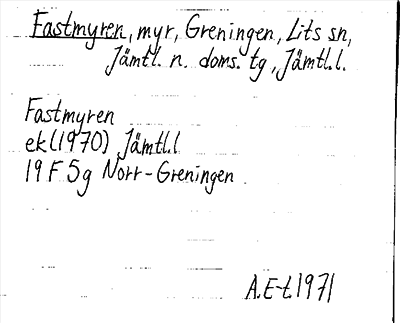 Fastmyren, myr, Greningen, Lits sn,
Jämtl. n. doms. tg, Jämtl.l.
Fastmyren
ek(1970) Jämtl.l
19 F 5g Norr-Greningen
A.E-t.1971